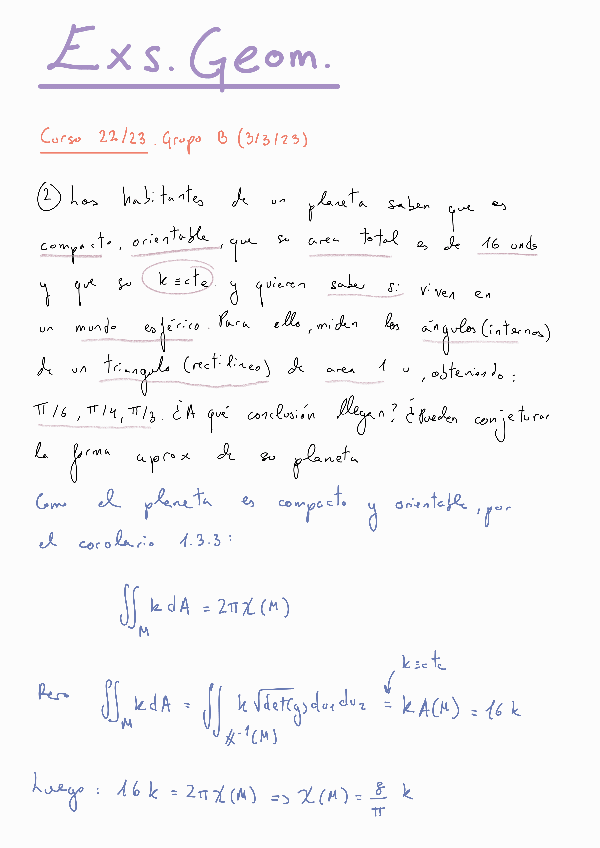 Exs. Geom.
Curso 22/23. Grupo B (3/3/23)
② Los habitantes de un planeta saben que es
compacto, orientable, que su area total es de 16 unds
y que su k ≡ cte y quieren saber si viven en
un mundo esférico. Para ello, miden los ángulos (internos)
de un triangulo (rectilineo) de area 1 u, obteniendo:
π/6, π/4, π/3. ¿A qué conclusión llegan? ¿Pueden conjeturar
la forma aprox de su planeta
Como el planeta es compacto y orientable, por
el corolario 1.3.3:
∬_M k dA = 2π χ(M)
k ≡ cte
Pero ∬_M k dA = ∬_{𝕏⁻¹(M)} k √det(g) du₁ du₂ = k A(M) = 16 k
Luego: 16 k = 2π χ(M) => χ(M) = 8/π k